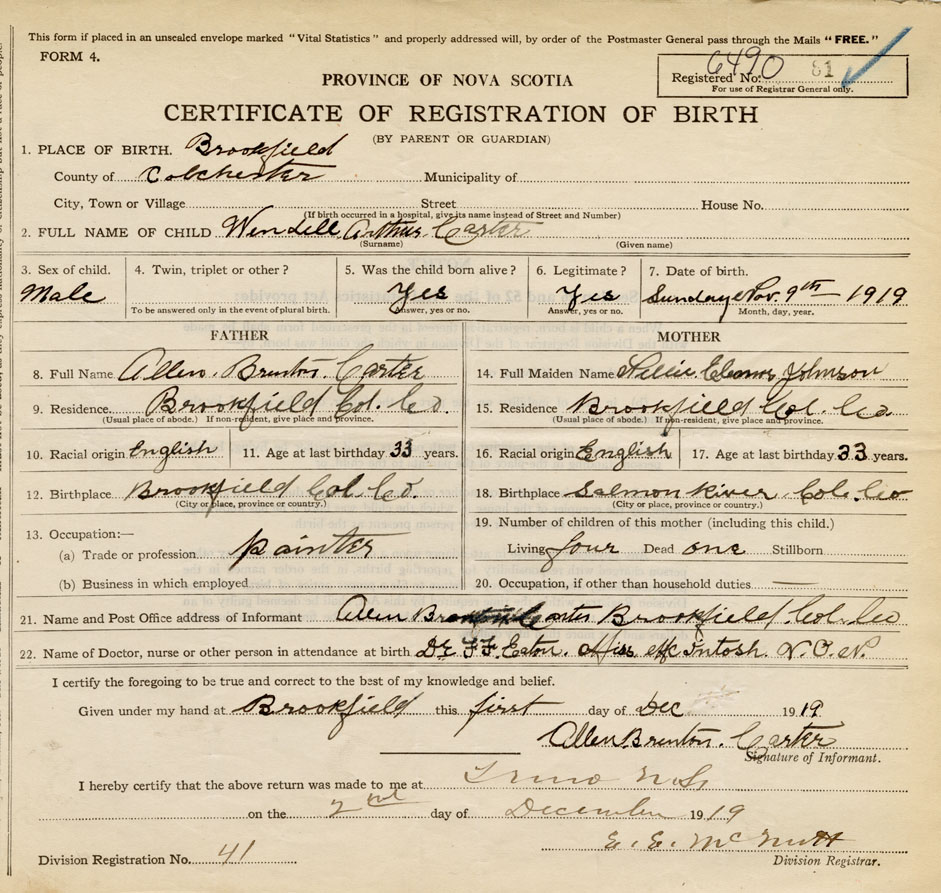 This form if placed in an unsealed envelope marked "Vital Statistics" and properly addressed will, by order of the Postmaster General pass through the Mails "FREE."
FORM 4.
Registered No. 6490 81
For use of Registrar General only.
PROVINCE OF NOVA SCOTIA
CERTIFICATE OF REGISTRATION OF BIRTH
(BY PARENT OR GUARDIAN)
1. PLACE OF BIRTH. Brookfield
County of Colchester Municipality of
City, Town or Village Street House No.
(If birth occurred in a hospital, give its name instead of Street and Number)
2. FULL NAME OF CHILD Wendell Arthur Carter
(Surname) (Given name)
3. Sex of child. 4. Twin, triplet or other? 5. Was the child born alive? 6. Legitimate? 7. Date of birth.
Male Yes Yes Sunday Nov. 9th - 1919
To be answered only in the event of plural birth. Answer, yes or no. Answer, yes or no. Month, day, year.
FATHER MOTHER
8. Full Name Allen Brenton Carter 14. Full Maiden Name Nellie Eleanor Johnson
9. Residence Brookfield Col. Co. 15. Residence Brookfield Col. Co
(Usual place of abode.) If non-resident, give place and province. (Usual place of abode.) If non-resident, give place and province.
10. Racial origin English 11. Age at last birthday 33 years. 16. Racial origin English 17. Age at last birthday 33 years.
12. Birthplace Brookfield Col. Co. 18. Birthplace Salmon River Col. Co
(City or place, province or country.) (City or place, province or country.)
13. Occupation:— 19. Number of children of this mother (including this child.)
(a) Trade or profession Painter Living four Dead one Stillborn
(b) Business in which employed 20. Occupation, if other than household duties —
21. Name and Post Office address of Informant Allen Brenton Carter Brookfield Col. Co
22. Name of Doctor, nurse or other person in attendance at birth Dr. F F Eaton. Miss McIntosh. V.O.N.
I certify the foregoing to be true and correct to the best of my knowledge and belief.
Given under my hand at Brookfield this first day of Dec 1919
Allen Brenton. Carter
Signature of Informant.
I hereby certify that the above return was made to me at Truro N.S.
on the 2nd day of December 1919
E. E. McNutt
Division Registration No. 41 Division Registrar.